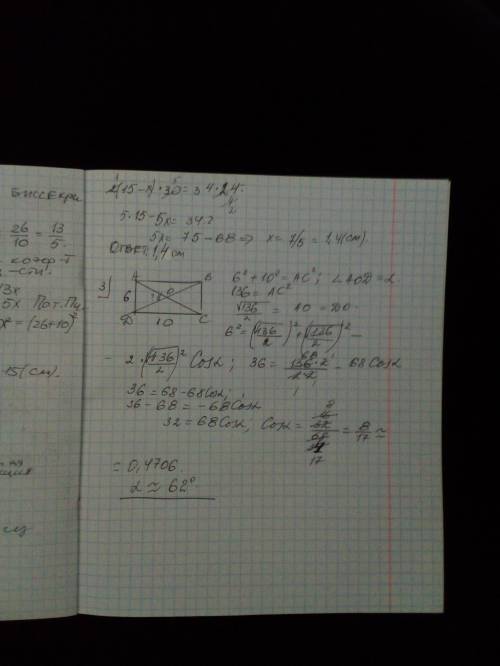 БИССЕКТРИ
26/10 = 13/5
13x
5x По т. Пи.
x² = (26+10)²
15 (см).
(15-x)·30 = 34·24
5·15-5x = 34·2
5x = 75-68 => x = 7/5 = 1,4(см)
ОТВЕТ: 1,4 см
3)
A B
6 α O
D C
10
6²+10² = AC²; ∠AOD = α
136 = AC²
√136/2 = AO = DO
6² = (√136/2)² + (√136/2)² -
- 2·(√136/2)² Cosα; 36 = 136·2/2·2 - 68 Cosα
36 = 68-68Cosα;
36-68 = -68Cosα
32 = 68Cosα, Cosα = 32/68 = 8/17 ≈
≈ 0,4706
α ≈ 62°